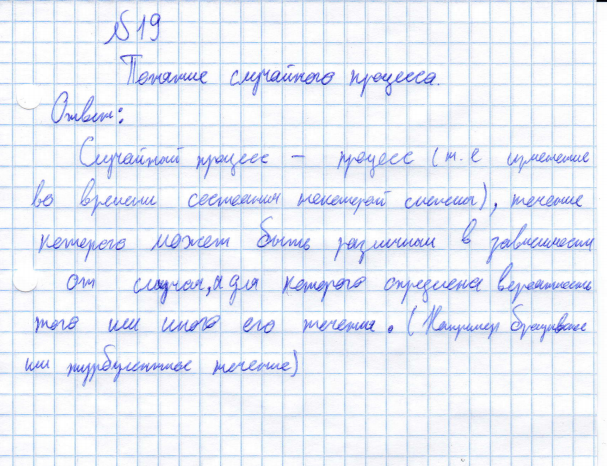 №19
Понятие случайного процесса.
Ответ:
Случайный процесс – процесс (т.е изменение
во времени состояния некоторой системы), течение
которого может быть различным в зависимости
от случая, и для которого определена вероятность
того или иного его течения. (Например броуновское
или турбулентное течение)